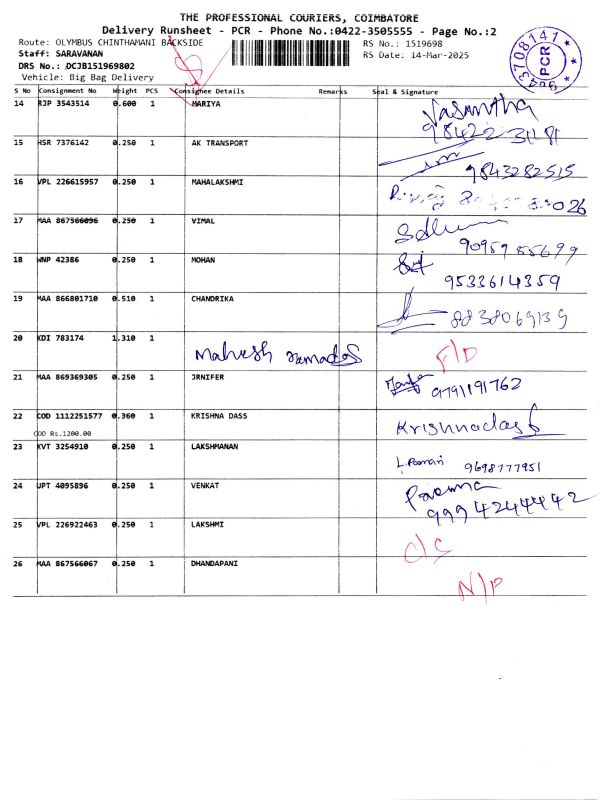 THE PROFESSIONAL COURIERS, COIMBATORE
Delivery Runsheet - PCR - Phone No.:0422-3505555 - Page No.:2
Route: OLYMBUS CHINTHAMANI BACKSIDE RS No.: 1519698
Staff: SARAVANAN RS Date: 14-Mar-2025
DRS No.: DCJB151969802
Vehicle: Big Bag Delivery
9843708141 PCR
S No Consignment No Weight PCS Consignee Details Remarks Seal & Signature
14 RJP 3543514 0.600 1 MARIYA Vasantha
98422 31181
15 HSR 7376142 0.250 1 AK TRANSPORT
9843282515
16 VPL 226615957 0.250 1 MAHALAKSHMI
17 MAA 867566096 0.250 1 VIMAL
9095985699
18 WNP 42386 0.250 1 MOHAN
9533614359
19 MAA 866801710 0.510 1 CHANDRIKA 8838069139
20 KDI 783174 1.310 1 Mahesh Ramadas F/D
21 MAA 869369305 0.250 1 JRNIFER 9791191762
22 COD 1112251577 0.360 1 KRISHNA DASS Krishnadass
COD Rs.1200.00
23 KVT 3254910 0.250 1 LAKSHMANAN L.Poomari 9698777951
24 UPT 4095896 0.250 1 VENKAT Poverna
999 4244442
25 VPL 226922463 0.250 1 LAKSHMI D/C
26 MAA 867566067 0.250 1 DHANDAPANI N/P